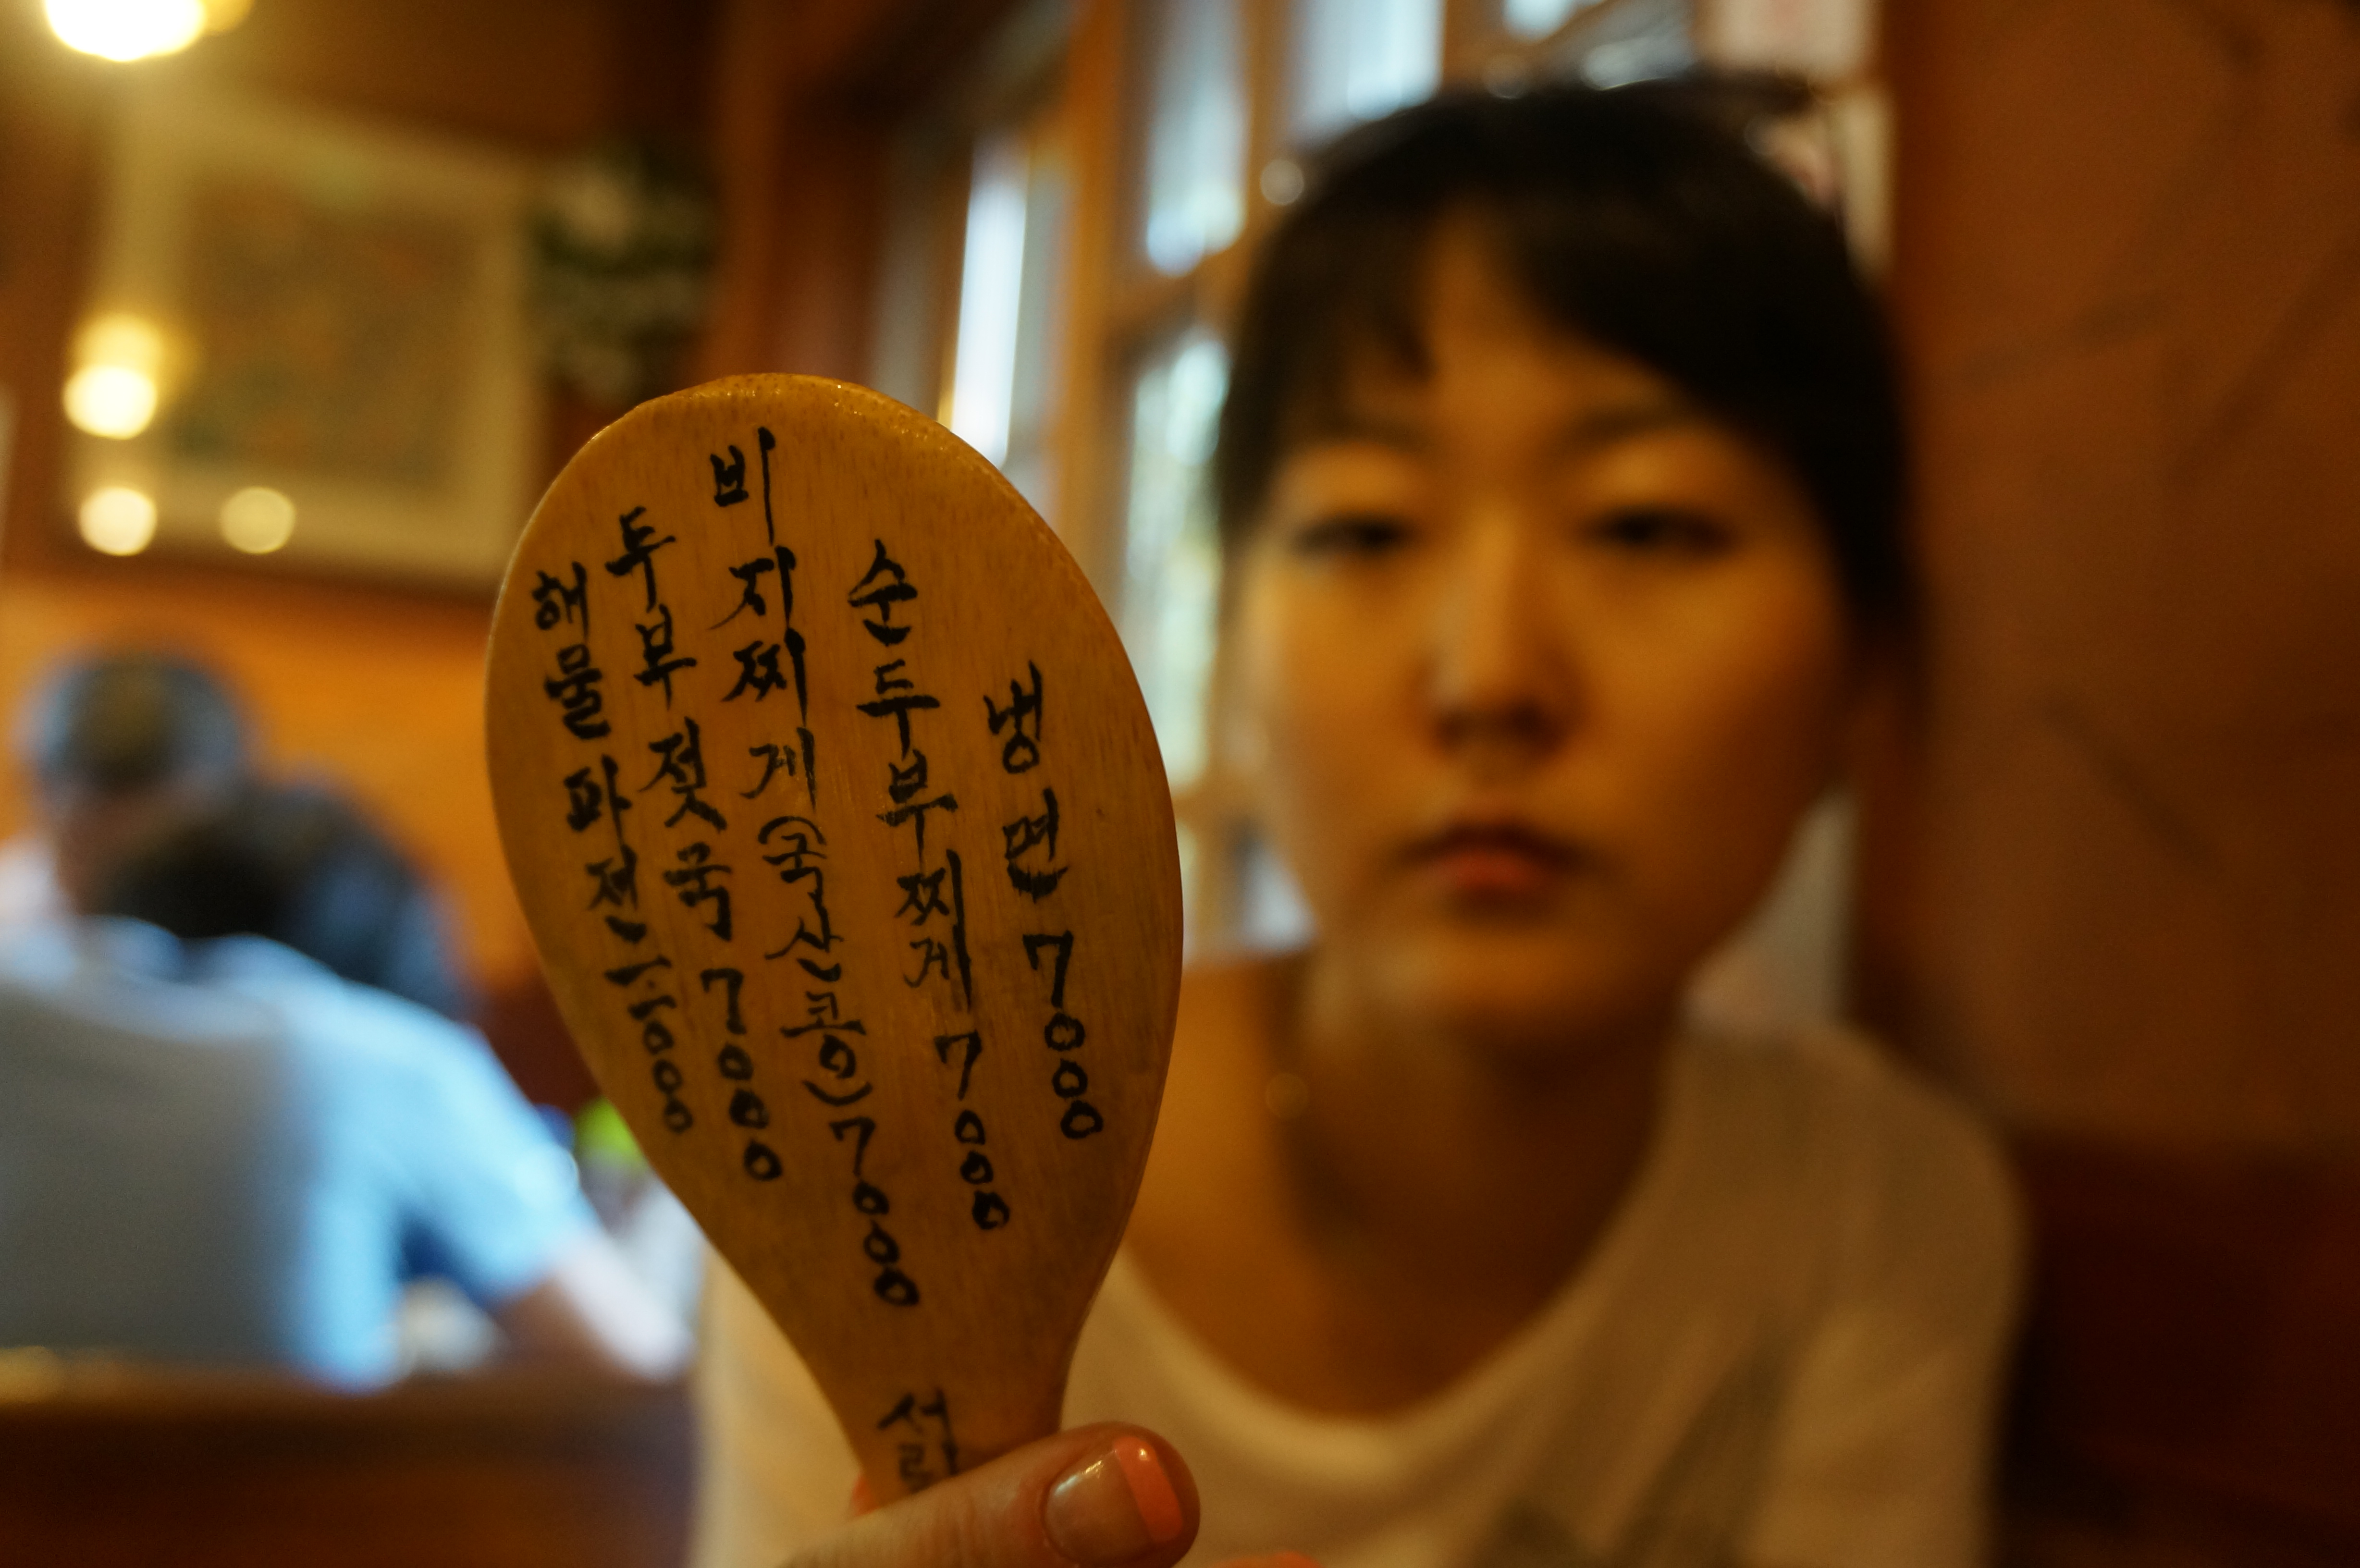 냉면 7000
순두부찌게 7000
비지찌게(국산콩)7000
두부젖국 7000
해물파전